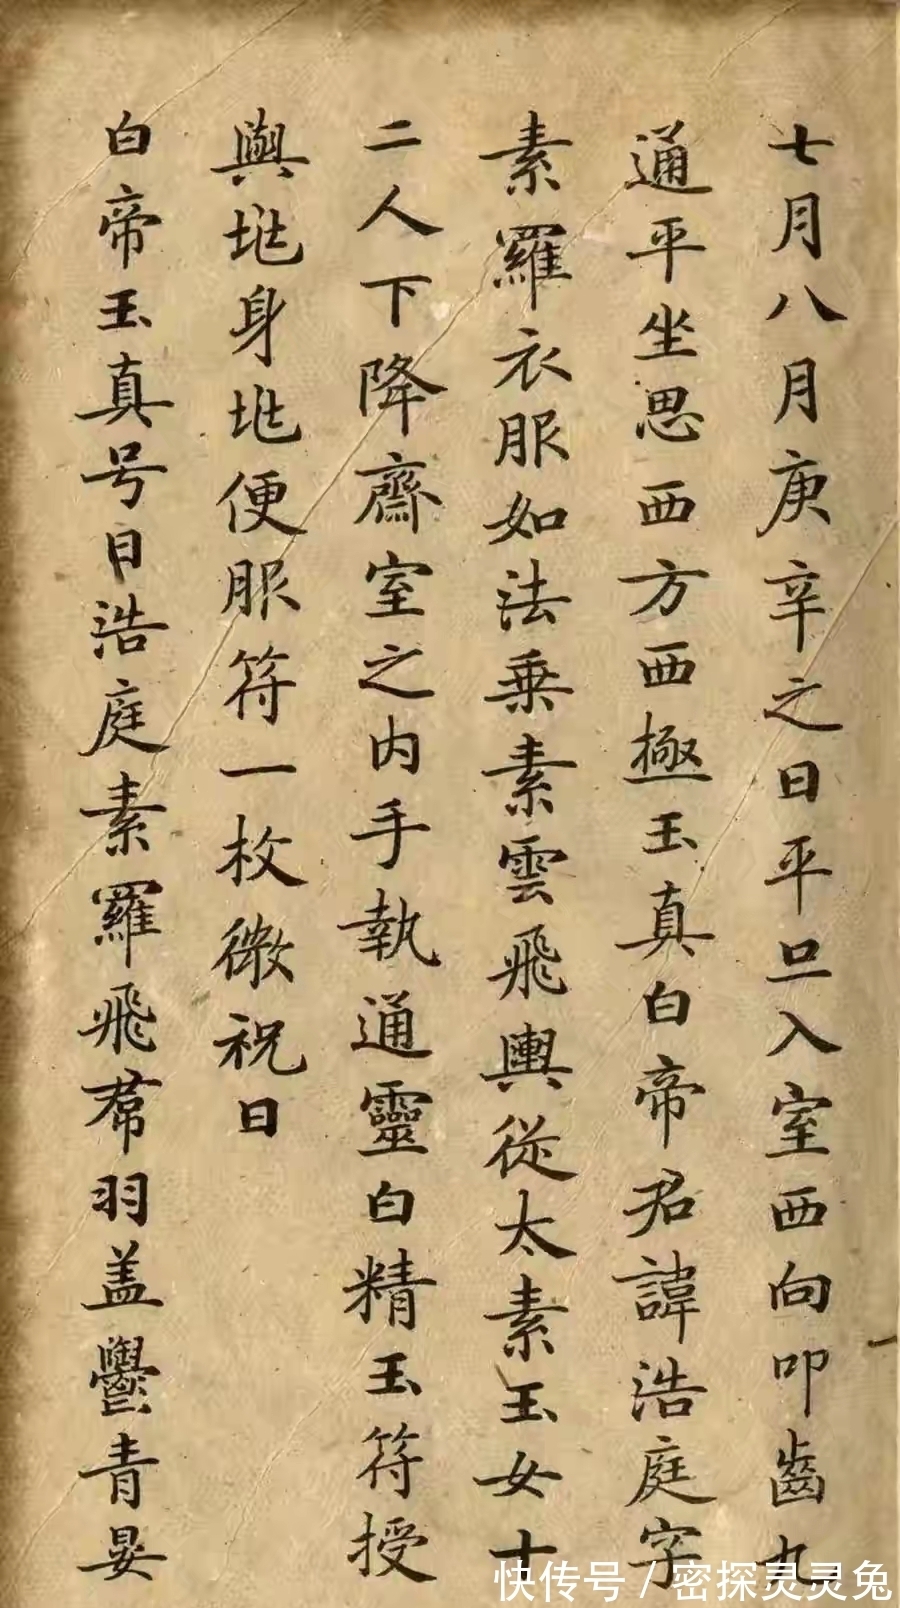 七月八月庚辛之日平旦入室西向叩齒九
通平坐思西方西極玉真白帝君諱浩庭字
素羅衣服如法乗素雲飛輿從太素玉女十
二人下降齋室之内手執通靈白精玉符授
與兆身兆便服符一枚微祝曰
白帝玉真号曰浩庭素羅飛帬羽盖鬱青晏
快传号／密探灵灵兔